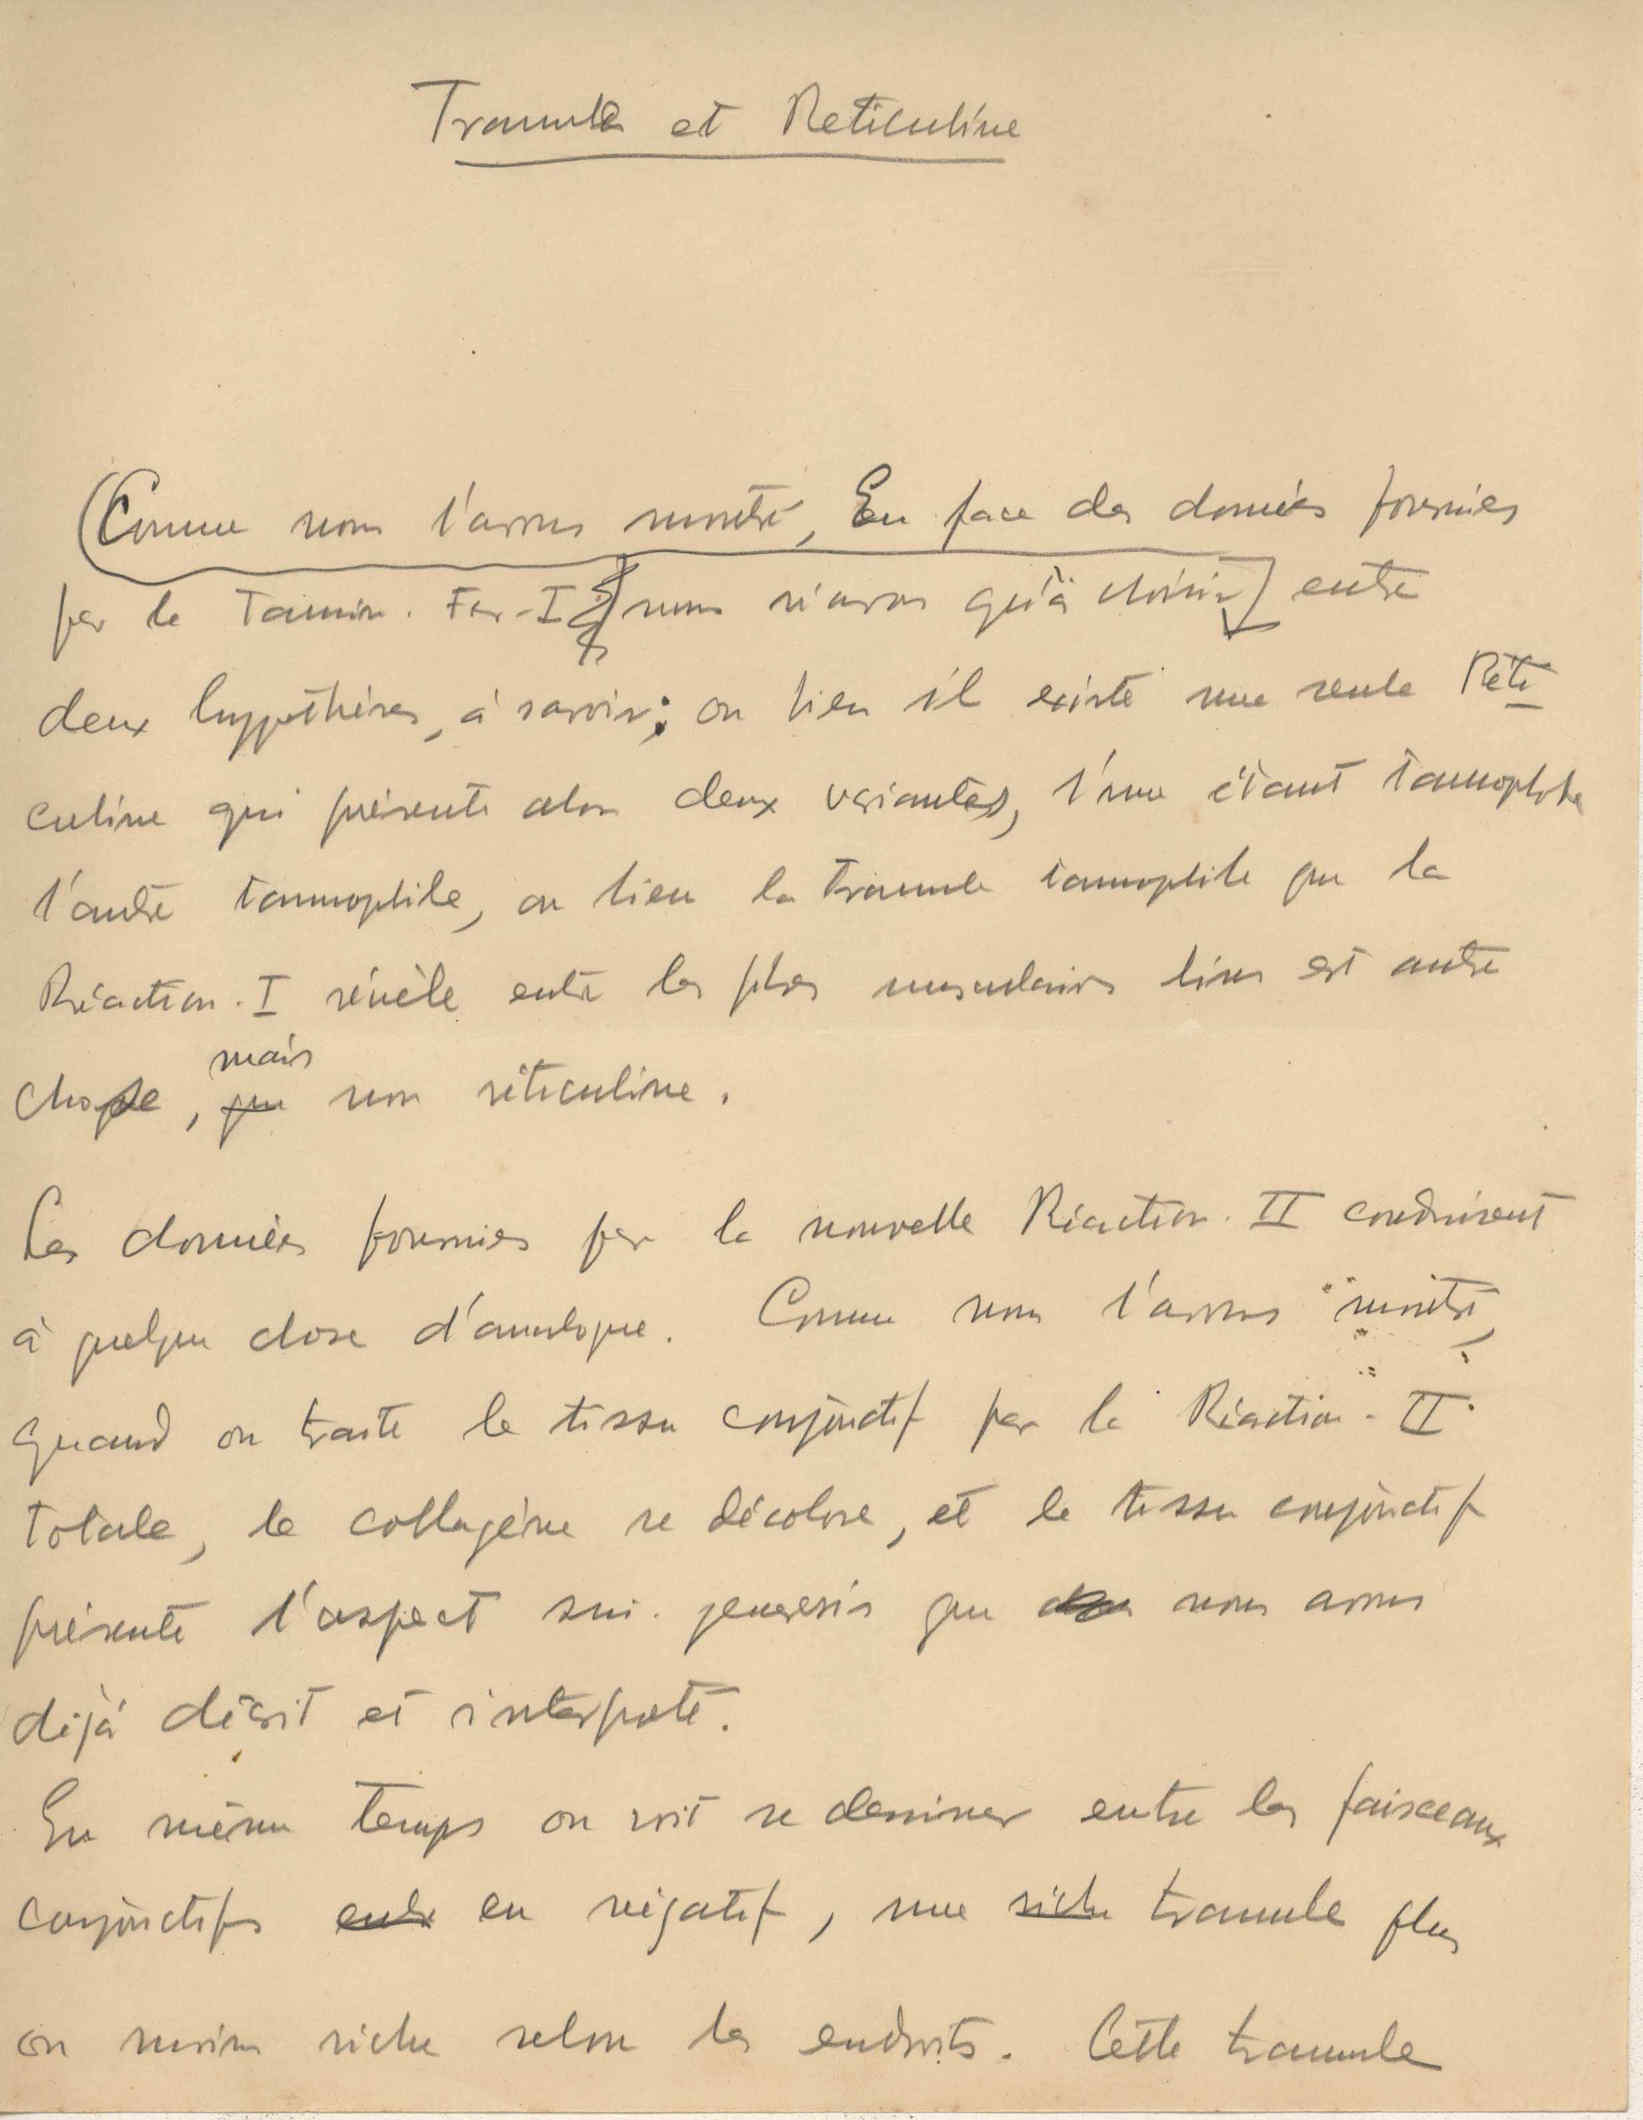 Tramule et Reticuline
(Comme nous l'avons montré, En face des données fournies
par le Tannin. Fer-I nous n'avons qu'à choisir] entre
deux hyppothèses, à savoir; ou bien il existe une seule Réti
culine qui présente alors deux variantes, l'une étant tannophobe
l'autre tannophile, ou bien la tramule tannophile que la
Réaction. I révèle entre les fibres musculaires lisses est autre
mais
chose, que non réticuline.
Les données fournies par la nouvelle Réaction. II conduisent
à quelque chose d'analogue. Comme nous l'avons montré,
quand on traite le tissu conjonctif par la Réaction - II
totale, le collagène se décolore, et le tissu conjonctif
présente l'aspect sui. generis que nous avons
déjà décrit et interpreté.
En même temps on voit se dessiner entre les faisceaux
conjonctifs entre en négatif, une riche tramule plus
ou moins riche selon les endroits. Cette tramule